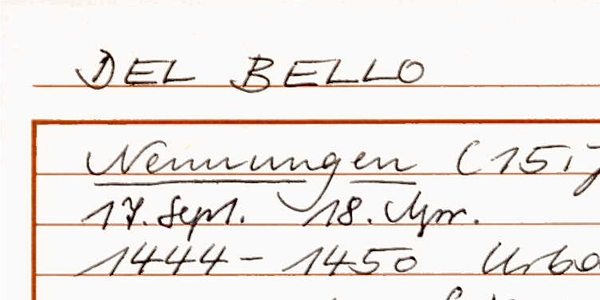 DEL BELLO
Nennungen (15
17. Sept. 18. Apr.
1444 - 1450 Urba